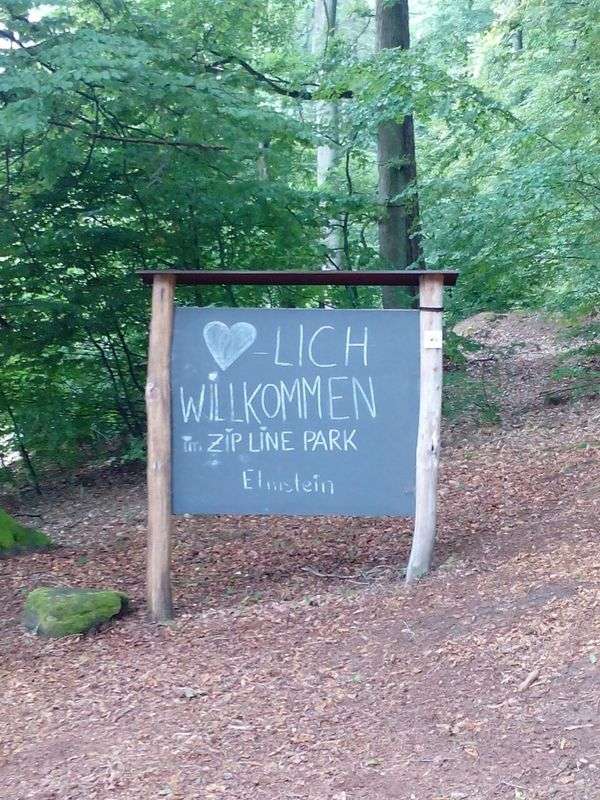 ♥-LICH
WILLKOMMEN
im ZIP LINE PARK
Elmstein